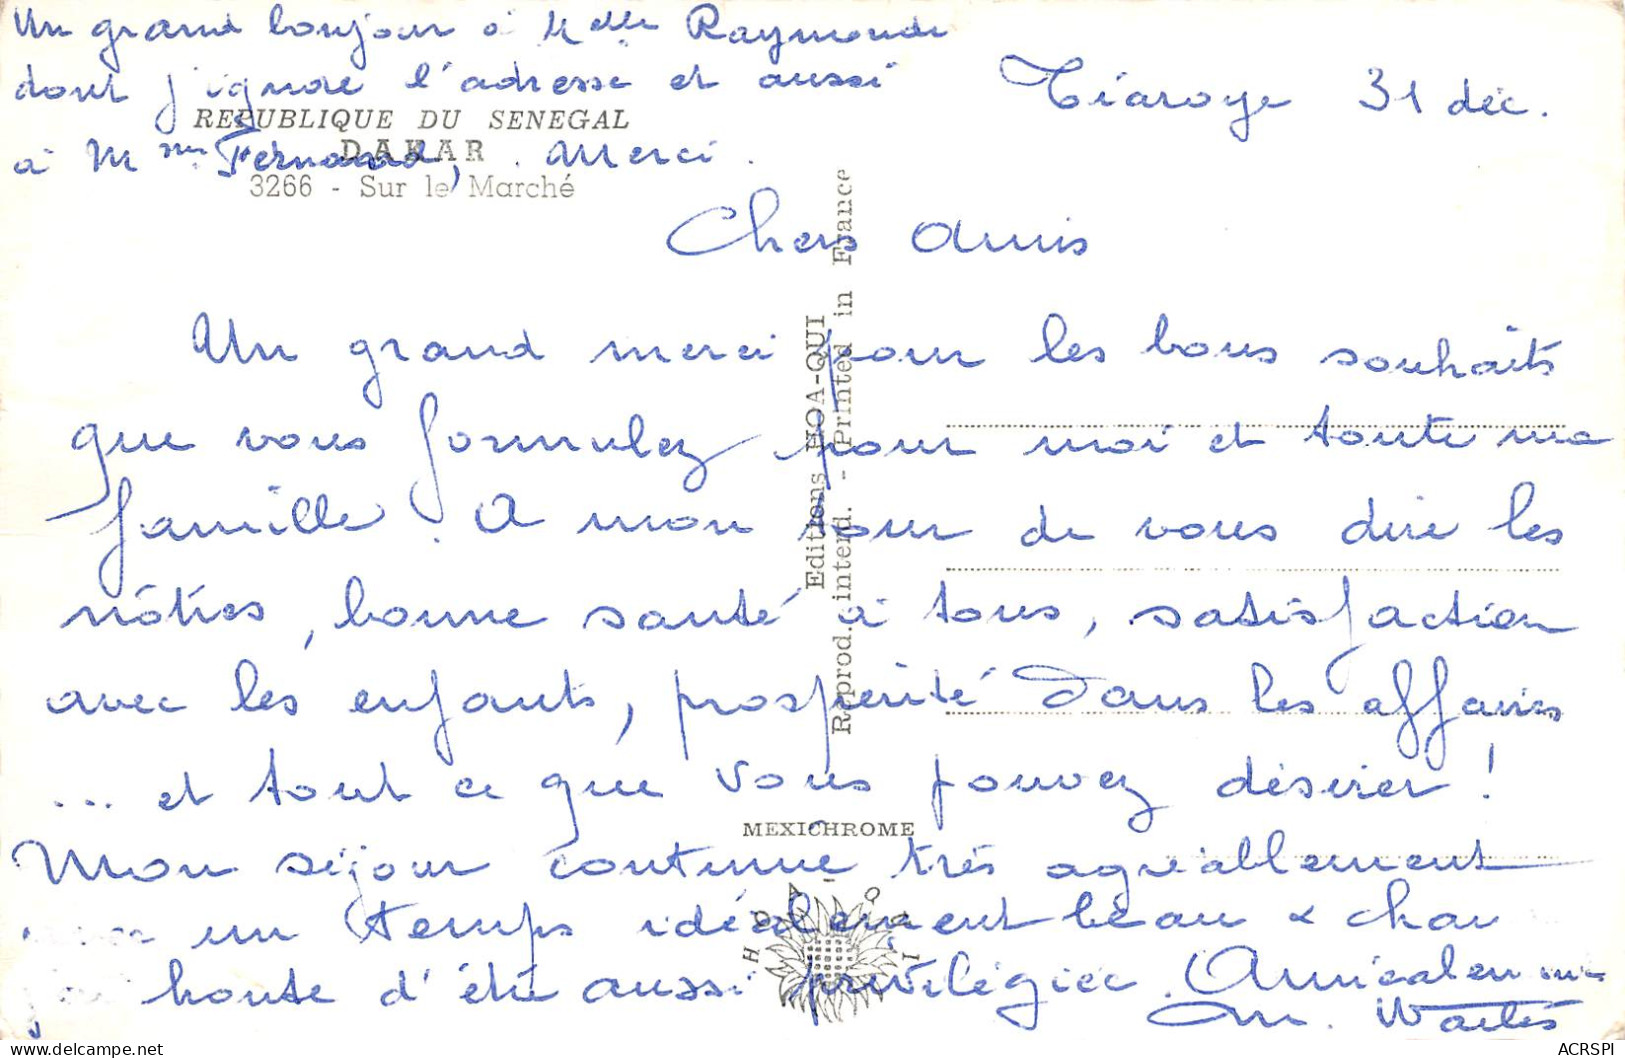 Un grand bonjour à Melle Raymonde
dont j'ignore l'adresse et aussi
à Mme Fernand, Merci.
REPUBLIQUE DU SENEGAL
DAKAR
3266 - Sur le Marché
Tiaroye 31 déc.
Chers Amis
Un grand merci pour les bons souhaits
que vous formulez pour moi et toute ma
famille. A mon tour de vous dire les
nôtres, bonne santé à tous, satisfaction
avec les enfants, prospérité dans les affaires
... et tout ce que vous pouvez désirer !
Mon séjour continue très agréablement
un temps idéalement beau & chau
honte d'être aussi privilégiée. Amicalement
M.
Editions HOA-QUI
Reprod. interd. - Printed in France
MEXICHROME
HOA-QUI
delcampe.net
ACRSPI